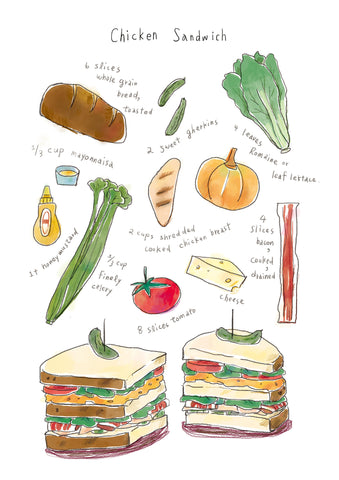 Chicken Sandwich
6 slices
whole grain
bread,
toasted
2 sweet gherkins
4 leaves
Romaine or
leaf lettace
1/3 cup mayonnaisa
1t honey mustard
1/3 cup
Finely
celery
2 cups shredded
cooked chicken breast
4
slices
bacon,
cooked,
drained
cheese
8 slices tomato